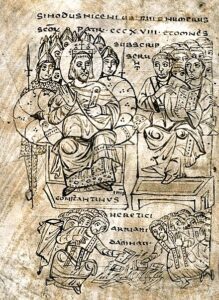 SINODUSNICENI UBI FUIT NUMERUS
SCOR PATR CCCXVIII ETOMNES
SUBSCRIP
SERU
CONSTANTINUS
HERETICI
ARRIANI
DAMNATI